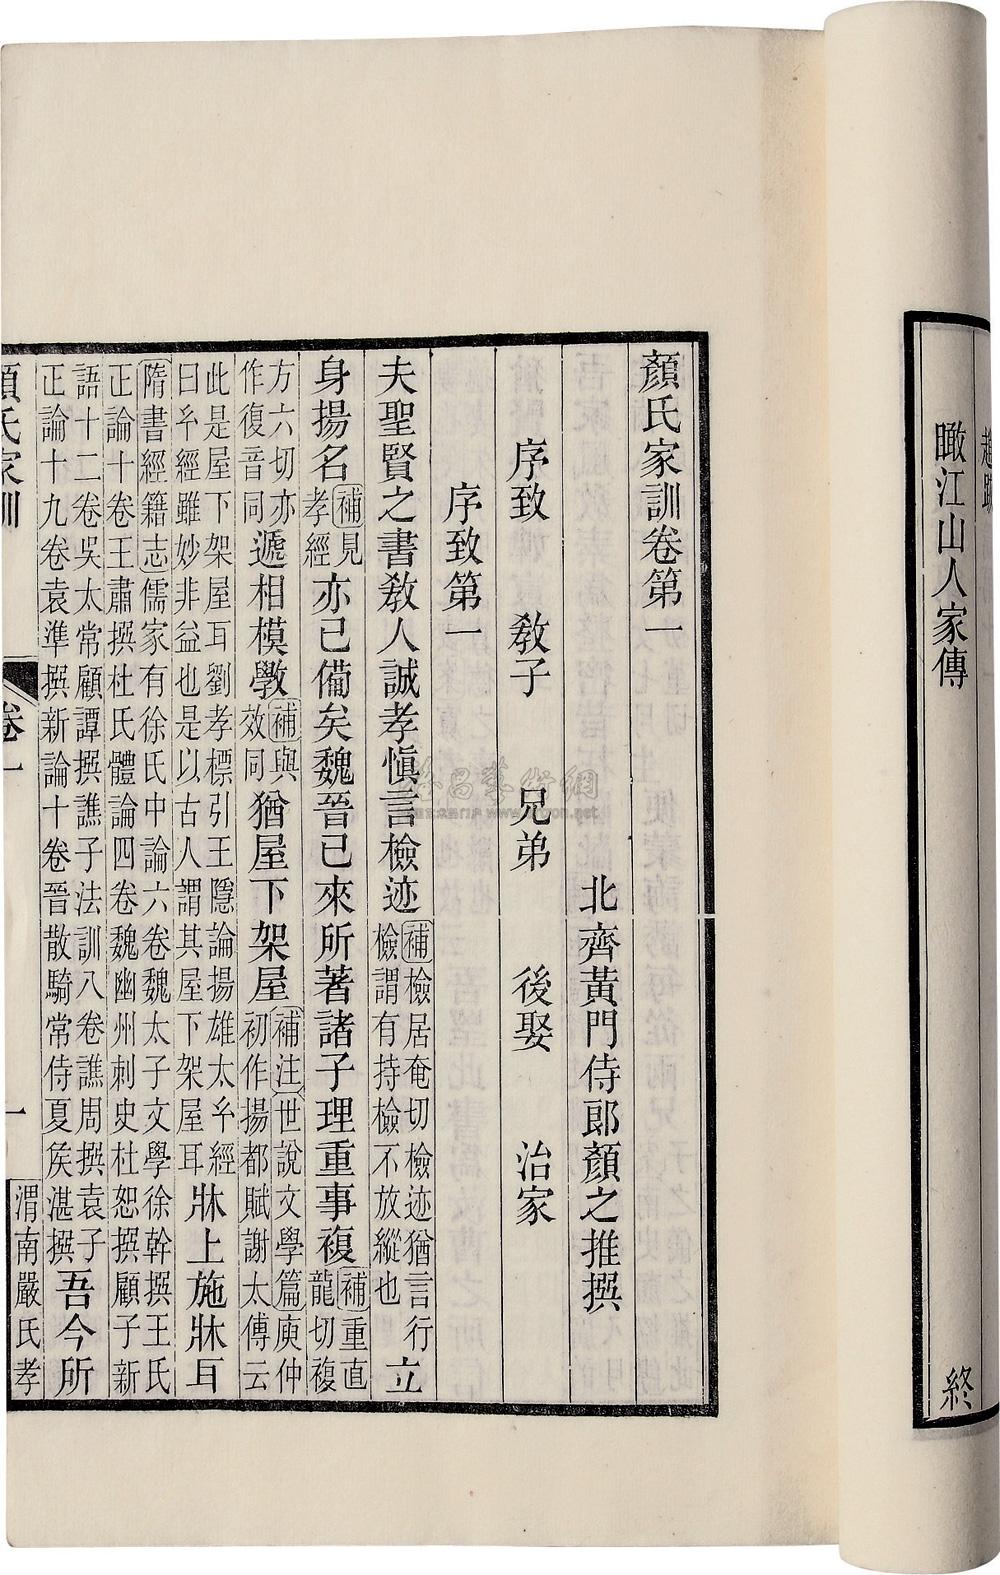 瞰江山人家傳 終
顏氏家訓卷第一
北齊黃門侍郎顏之推撰
序致 教子 兄弟 後娶 治家
序致第一
夫聖賢之書教人誠孝慎言檢迹補檢居奄切檢迹猶言行檢謂有持檢不放縱也立
身揚名補見孝經亦已備矣魏晉已來所著諸子理重事複補重直龍切複
方六切亦作復音同遞相模斆補與效同猶屋下架屋補注世說文學篇庾仲初作揚都賦謝太傅云
此是屋下架屋耳劉孝標引王隱論揚雄太玄經曰玄經雖妙非益也是以古人謂其屋下架屋耳牀上施牀耳
隋書經籍志儒家有徐氏中論六卷魏太子文學徐幹撰王氏正論十卷王肅撰杜氏體論四卷魏幽州刺史杜恕撰顧子新
語十二卷吳太常顧譚撰譙子法訓八卷譙周撰袁子正論十九卷袁準撰新論十卷晉散騎常侍夏侯湛撰吾今所
顏氏家訓 卷一 一 渭南嚴氏孝